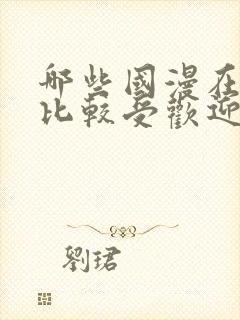 哪些國漫在
比較受歡迎
劉珺